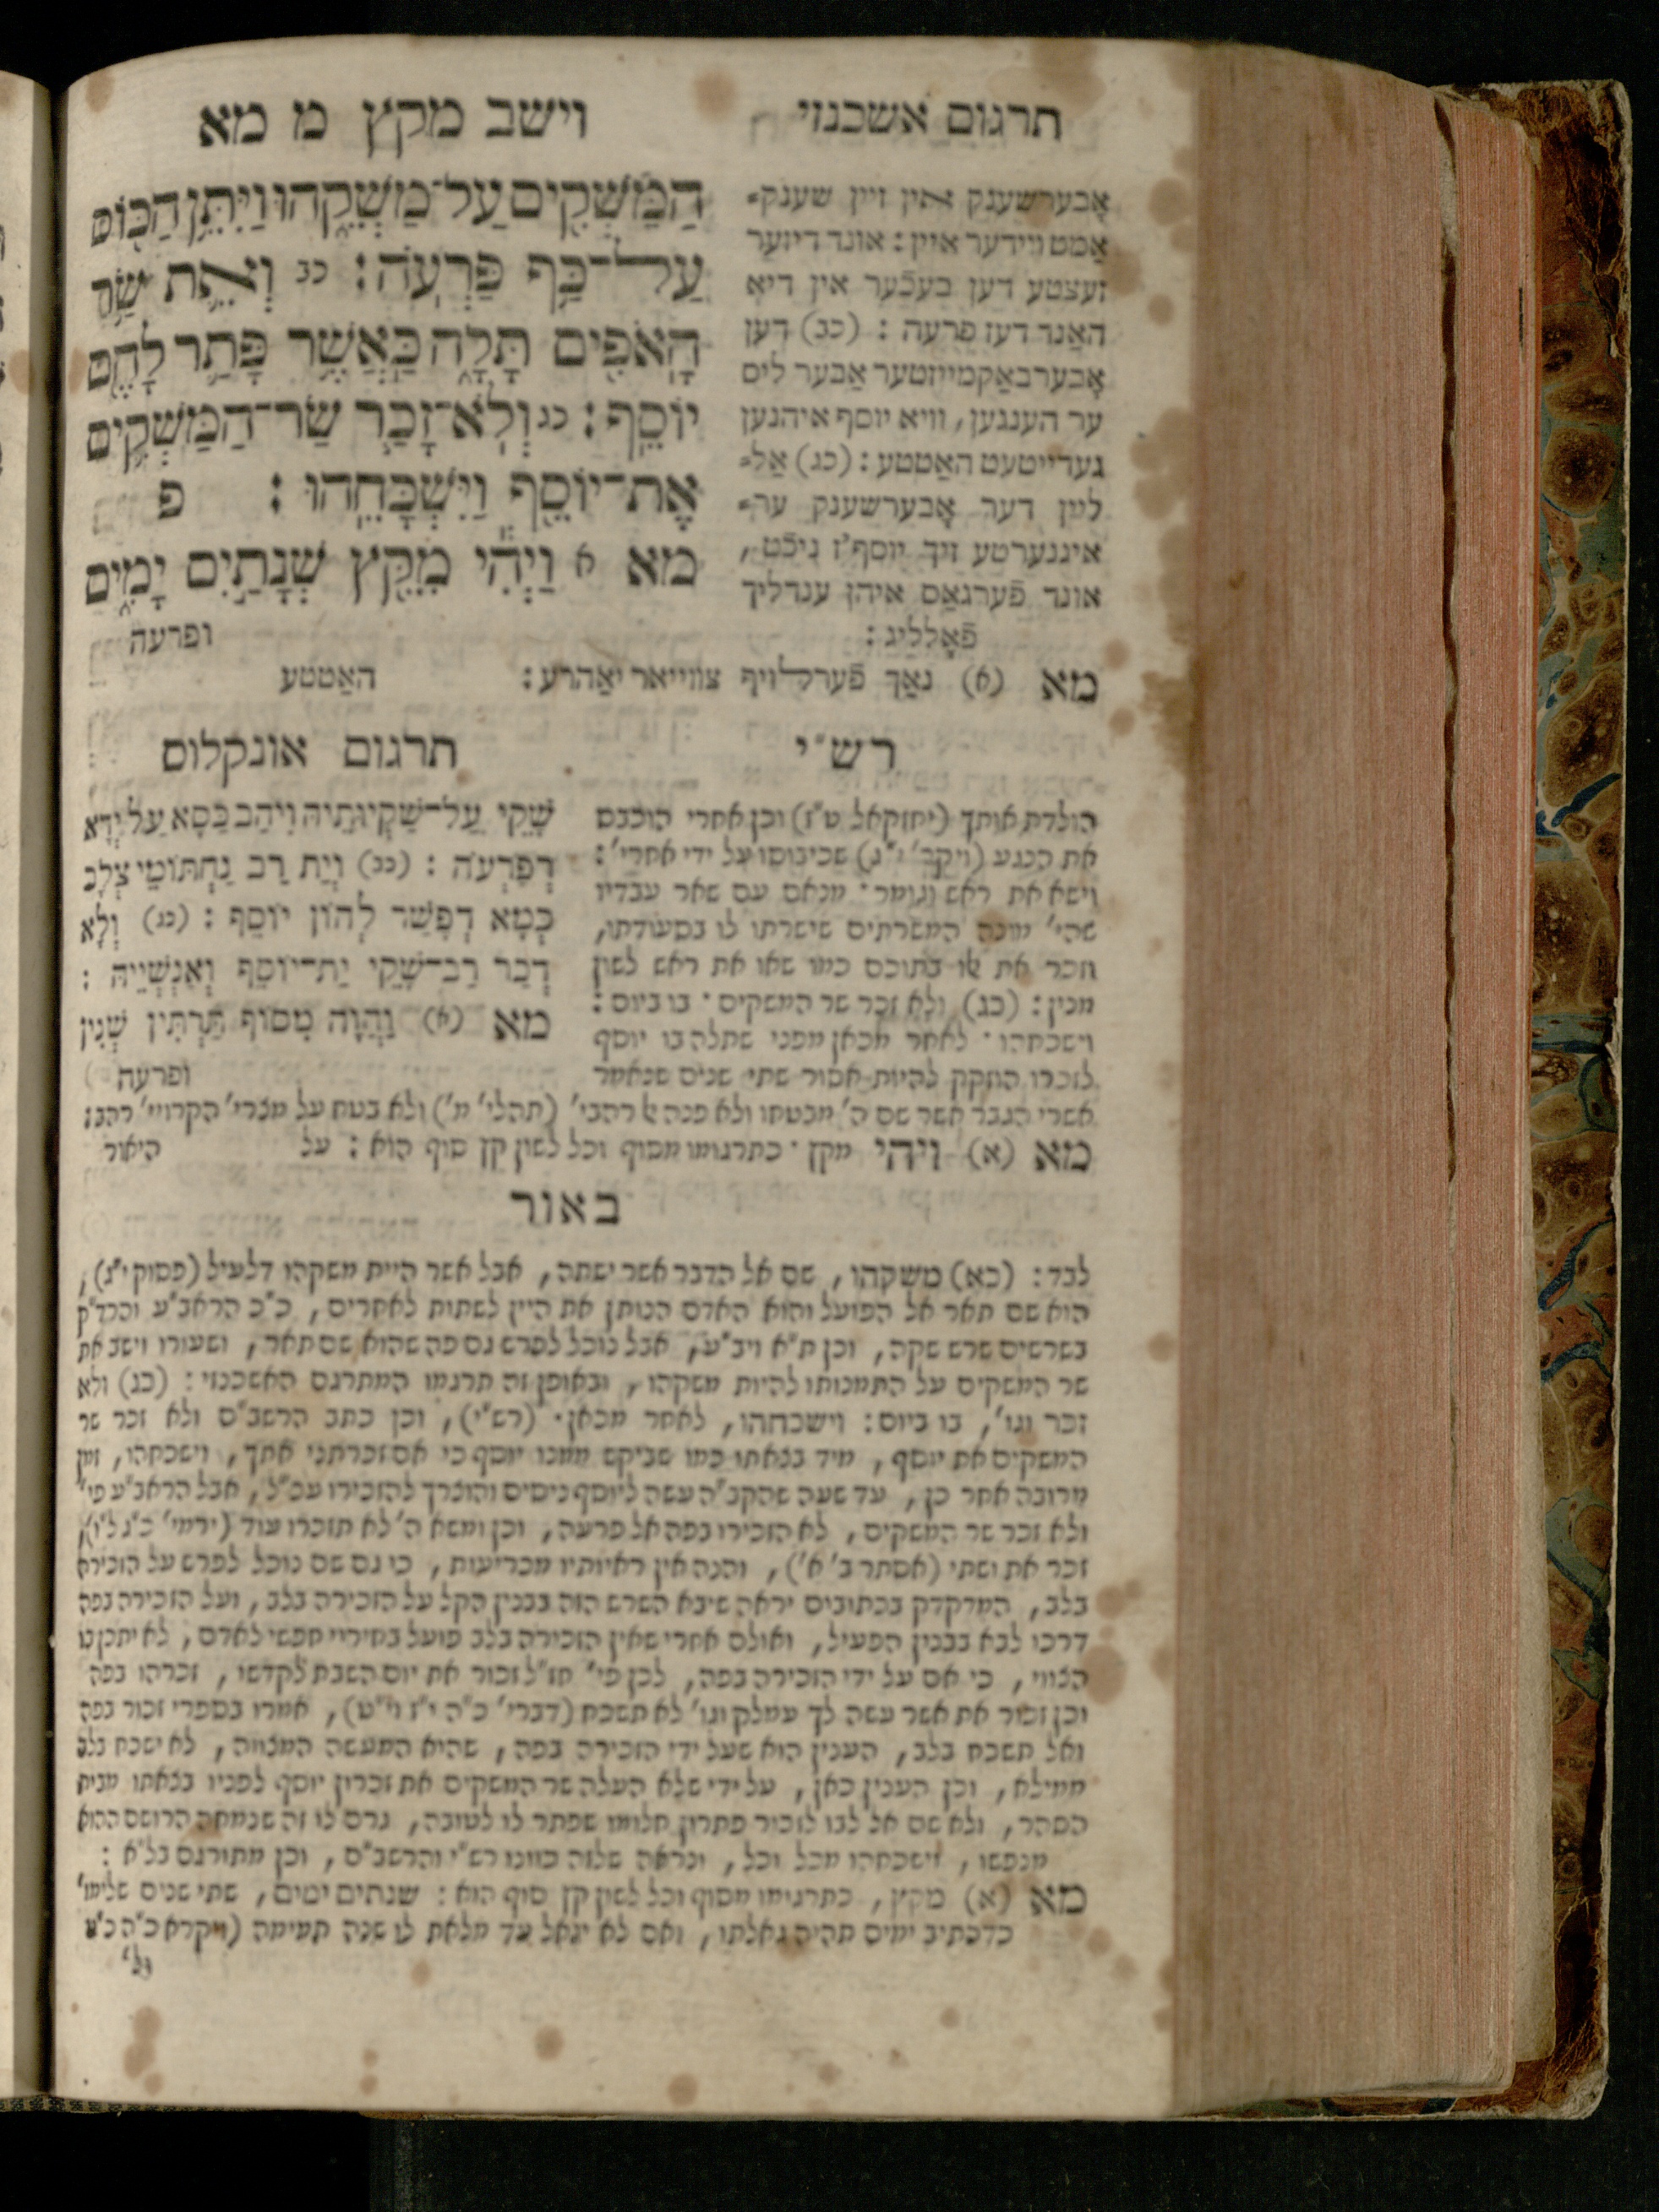 תרגום אשכנזי
וישב מקץ מ מא
הַמַּשְׁקִים עַל־מַשְׁקֵהוּ וַיִּתֵּן הַכּוֹס
עַל־כַּף פַּרְעֹה׃ כב וְאֵת שַׂר
הָאֹפִים תָּלָה כַּאֲשֶׁר פָּתַר לָהֶם
יוֹסֵף׃ כג וְלֹא־זָכַר שַׂר־הַמַּשְׁקִים
אֶת־יוֹסֵף וַיִּשְׁכָּחֵהוּ׃ פ
מא א וַיְהִי מִקֵּץ שְׁנָתַיִם יָמִים
ופרעה
אָבערשענק אין זיין שענק־
אַמט ווידער איין: אונד דיזער
זעצטע דען בעכֿער אין דיא
האַנד דעז פרעה: (כב) דען
אָבערבאַקמייזטער אַבער ליס
ער הענגען, וויא יוסף איהנען
געדייטעט האַטטע: (כג) אַל־
ליין דער אָבערשענק ער־
איננערטע זיך יוסף'ז ניכֿט,
אונד פֿערגאַס איהן ענדליך
פֿאָלליג:
מא (א) נאַך פֿערלויף צווייאר יאַהרע: האַטטע
רש״י
הולדת אותך (יחזקאל ט״ז) וכן אחרי הוכבס
את הנגע (ויקר' י״ג) שכיבוסו על ידי אחרי':
וישא את ראש וגומר · מנאם עם שאר עבדיו
שהי' מונה המשרתים שישרתו לו בסעודתו,
וזכר את אלו בתוכם כמו שאו את ראש לשון
מנין: (כג) ולא זכר שר המשקים · בו ביום:
וישכחהו · לאחר מכאן מפני שתלה בו יוסף
לזכרו הוזקק להיות אסור שתי שנים שנאמר
אשרי הגבר אשר שם ה' מבטחו ולא פנה אל רהבי' (תהלי' מ') ולא בטח על מצרי' הקרויי' רהב:
מא (א) ויהי מקץ · כתרגומו מסוף וכל לשון קץ סוף הוא: על היאור
תרגום אונקלוס
שָׁקֵי עַל־שַׁקְיוּתֵיהּ וִיהַב כַּסָּא עַל יְדָא
דְפַרְעֹה: (כב) וְיָת רַב נַחְתּוֹמֵי צְלַב
כְּמָא דְפַשַּׁר לְהוֹן יוֹסֵף: (כג) וְלָא
דְכַר רַב־שָׁקֵי יָת־יוֹסֵף וְאַנְשְׁיֵיהּ:
מא (א) וַהֲוָה מִסּוֹף תַּרְתֵּין שְׁנִין
ופרעה
באור
לבד: (כא) משקהו, שם אל הדבר אשר ישתה, אבל אשר היית משקהו דלעיל (פסוק י״ג),
הוא שם תאר אל הפועל והוא האדם הנותן את היין לשתות לאחרים, כ״כ הראב״ע והרד״ק
בשרשים שרש שקה, וכן ת״א ויב״ע, אבל נוכל לפרש גם פה שהוא שם תאר, ושעורו וישב את
שר המשקים על התמנותו להיות משקהו, ובאופן זה תרגמו המתרגם האשכנזי: (כג) ולא
זכר וגו', בו ביום: וישכחהו, לאחר מכאן· (רש״י), וכן כתב הרשב״ם ולא זכר שר
המשקים את יוסף, מיד בצאתו כמו שביקש ממנו יוסף כי אם זכרתני אתך, וישכחהו, זמן
מרובה אחר כן, עד שעה שהקב״ה עשה ליוסף ניסים והוצרך להזכירו עכ״ל, אבל הראב״ע פי'
ולא זכר שר המשקים, לא הזכירו בפה אל פרעה, וכן ומשא ה' לא תזכרו עוד (ירמי' כ״ג ל״ו),
זכר את ושתי (אסתר ב' א'), והנה אין ראיותיו מכריעות, כי גם שם נוכל לפרש על הזכירה
בלב, המדקדק בכתובים יראה שיבא השרש הזה בבנין הקל על הזכירה בלב, ועל הזכירה בפה
דרכו לבא בבנין הפעיל, ואולם אחרי שאין הזכירה בלב פועל בחיריי חפשי לאדם, לא יתכן בו
הצווי, כי אם על ידי הזכירה בפה, לכן פי' חז״ל זכור את יום השבת לקדשו, זכרהו בפה
וכן זכור את אשר עשה לך עמלק וגו' לא תשכח (דברי' כ״ה י״ז וי״ט), אמרו בספרי זכור בפה
ואל תשכח בלב, הענין הוא שעל ידי הזכירה בפה, שהיא המעשה המצווה, לא ישכח בלב
ממילא, וכן הענין כאן, על ידי שלא העלה שר המשקים את זכרון יוסף לפניו בצאתו מבית
הסהר, ולא שם אל לבו לזכור פתרון חלומו שפתר לו לטובה, גרם לו זה שנמחה הרושם ההוא
מנפשו, וישכחהו מכל וכל, ונראה שלזה כוונו רש״י והרשב״ם, וכן מתורגם בל״א:
מא (א) מקץ, כתרגומו מסוף וכל לשון קץ סוף הוא: שנתים ימים, שתי שנים שלימו'
כדכתיב ימים תהיה גאלתו, ואם לא יגאל עד מלאת לו שנה תמימה (ויקרא כ״ה כ״ט